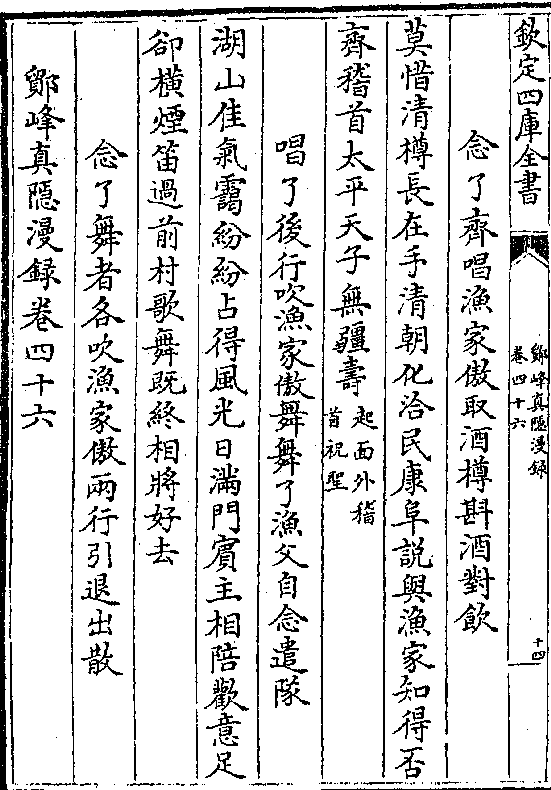 欽定四庫全書
鄮峰真隱漫録
卷四十六
十四
念了齊唱漁家傲取酒樽斟酒對飲
莫惜清樽長在手清朝化洽民康阜説與漁家知得否
齊稽首太平天子無疆壽起面外稽
首祝聖
唱了後行吹漁家傲舞舞了漁父自念遣隊
湖山佳氣靄紛紛占得風光日滿門賓主相陪歡意足
卻橫煙笛過前村歌舞既終相將好去
念了舞者各吹漁家傲兩行引退出散
鄮峰真隱漫録卷四十六